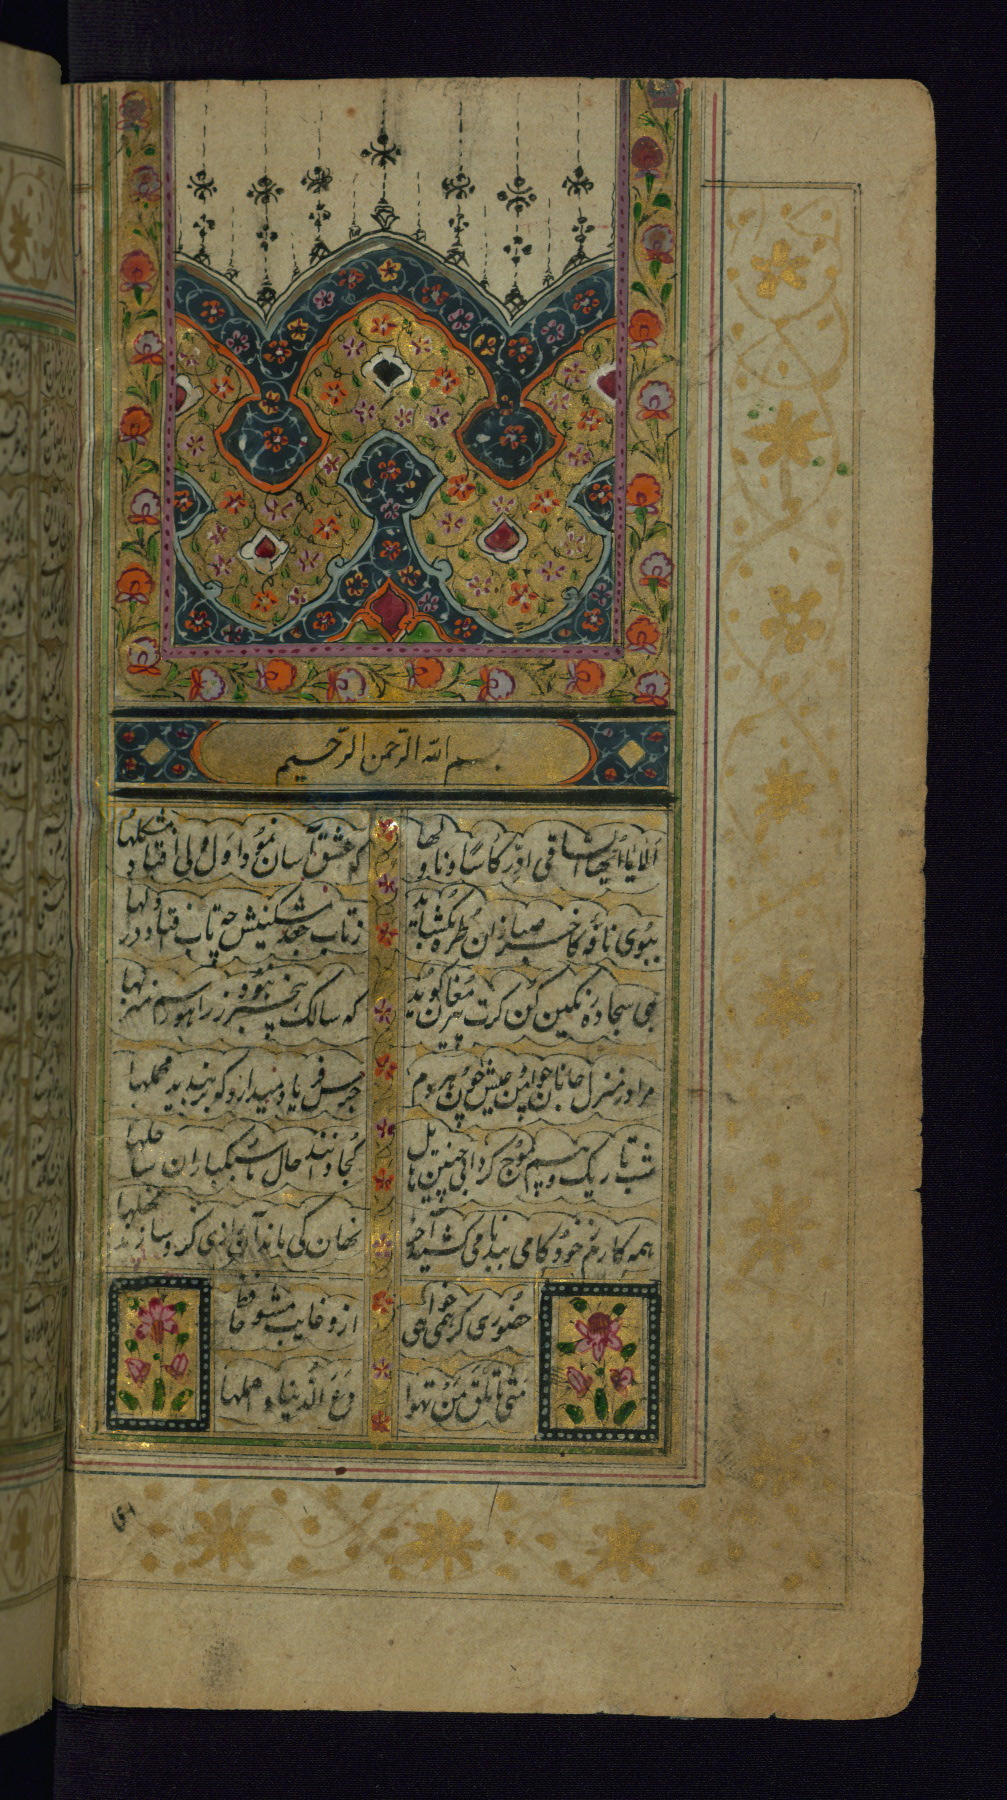 بسم الله الرحمن الرحیم
الا یا ایها الساقی ادر کاسا و ناولها
که عشق آسان نمود اول ولی افتاد مشکلها
ببوی نافه کاخر صبا زان طره بکشاید
ز تاب جعد مشکینش چه تاب افتاد در دلها
بمی سجاده رنکین کن کرت پیر مغان کوید
که سالک بیخبر نبود ز راه و رسم منزلها
مرا در منزل جانان چه امن عیش چون هر دم
جرس فریاد میدارد که بربندید محملها
شب تاریک و بیم موج و کردابی چنین هایل
کجا دانند حال ما سبکباران ساحلها
همه کارم ز خود کامی ببدنامی کشید آخر
نهان کی ماند آن رازی کزو سازند محفلها
حضوری کر همی خواهی
ازو غایب مشو حافظ
متی ما تلق من تهوا
دع الدنیا و اهملها